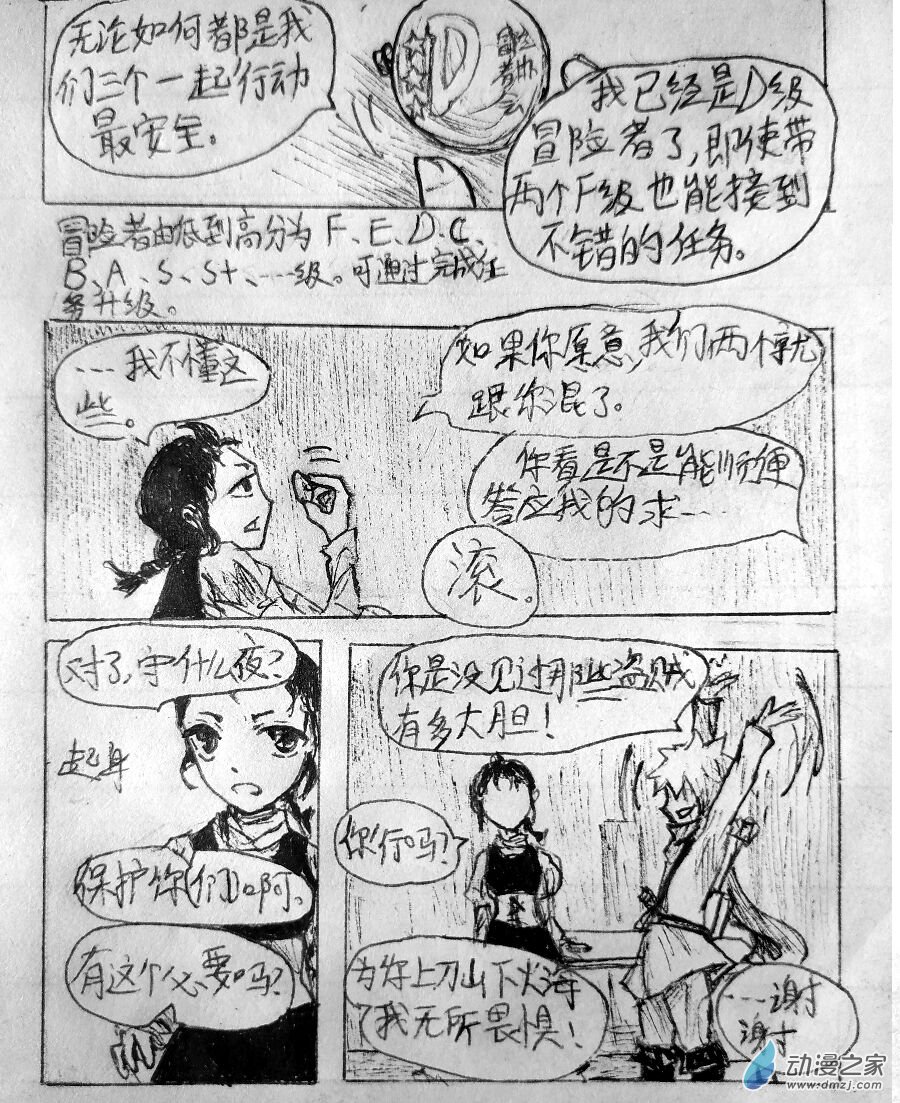 无论如何都是我
们三个一起行动
最安全。
D
冒险
者协
会
我已经是D级
冒险者了,即使带
两个F级也能接到
不错的任务。
冒险者由低到高分为F、E、D、C、
B、A、S、S+、----级。可通过完成任
务升级。
----我不懂这
些。
如果你愿意,我们两个就
跟你混了。
你看是不是能顺便
答应我的求----
滚。
对了,守什么夜?
起身
保护你们D啊。
有这个必要吗?
你是没见过那些盗贼
有多大胆!
你行吗?
为你上刀山下火海
我无所畏惧!
----谢
谢
动漫之家
www.dmzj.com